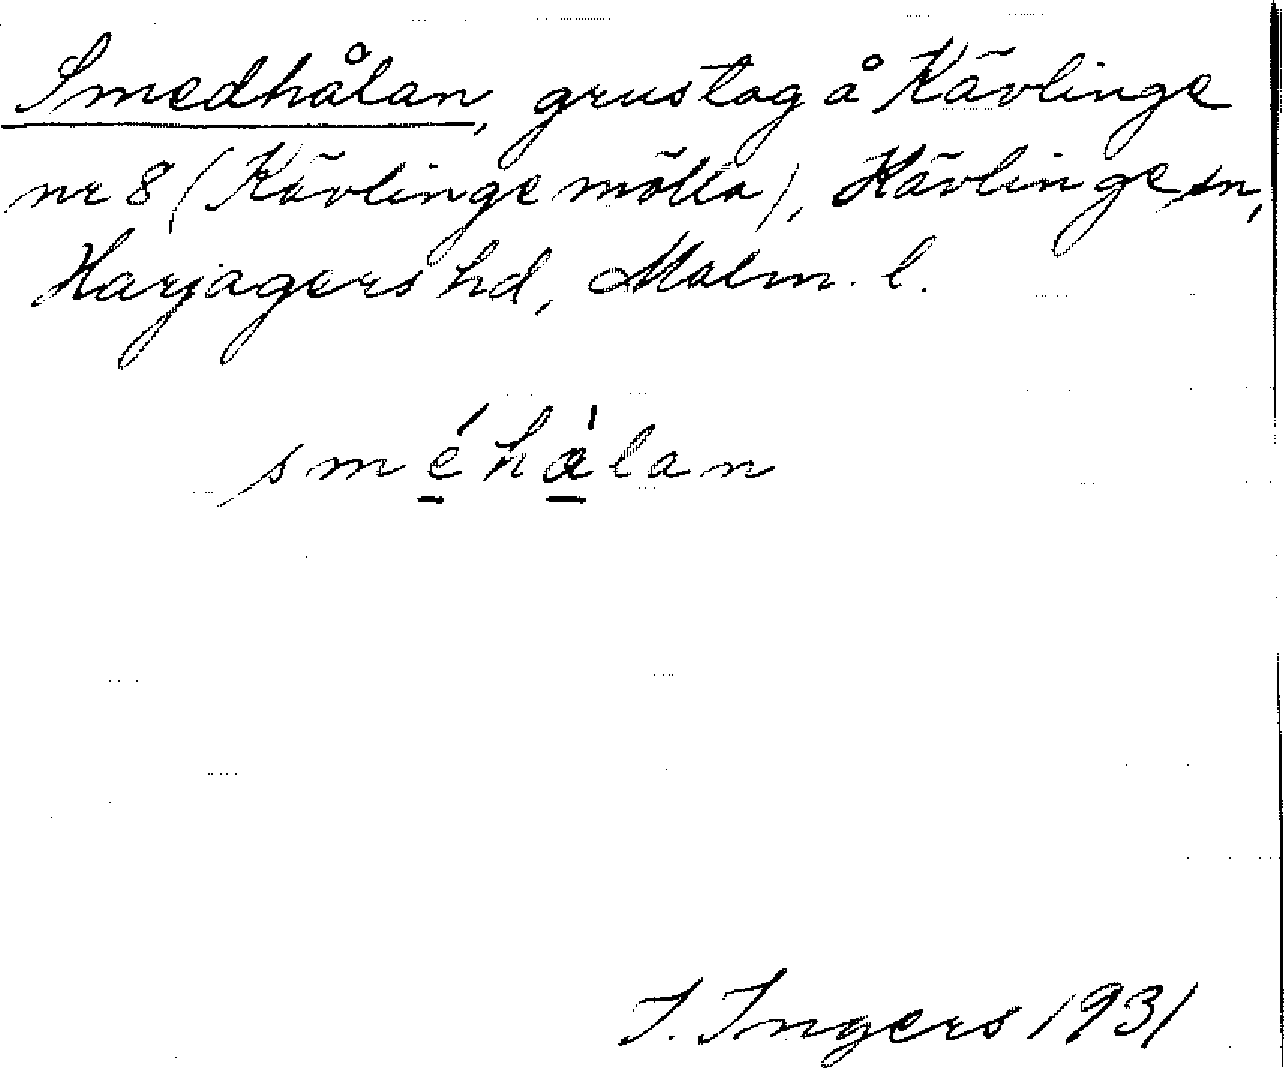 Smedhålan, grustag å Kävlinge
nr 8 (Kävlinge mölla), Kävlinge sn,
Harjagers hd, Malm. l.
sméhàlan
I. Ingers 1931